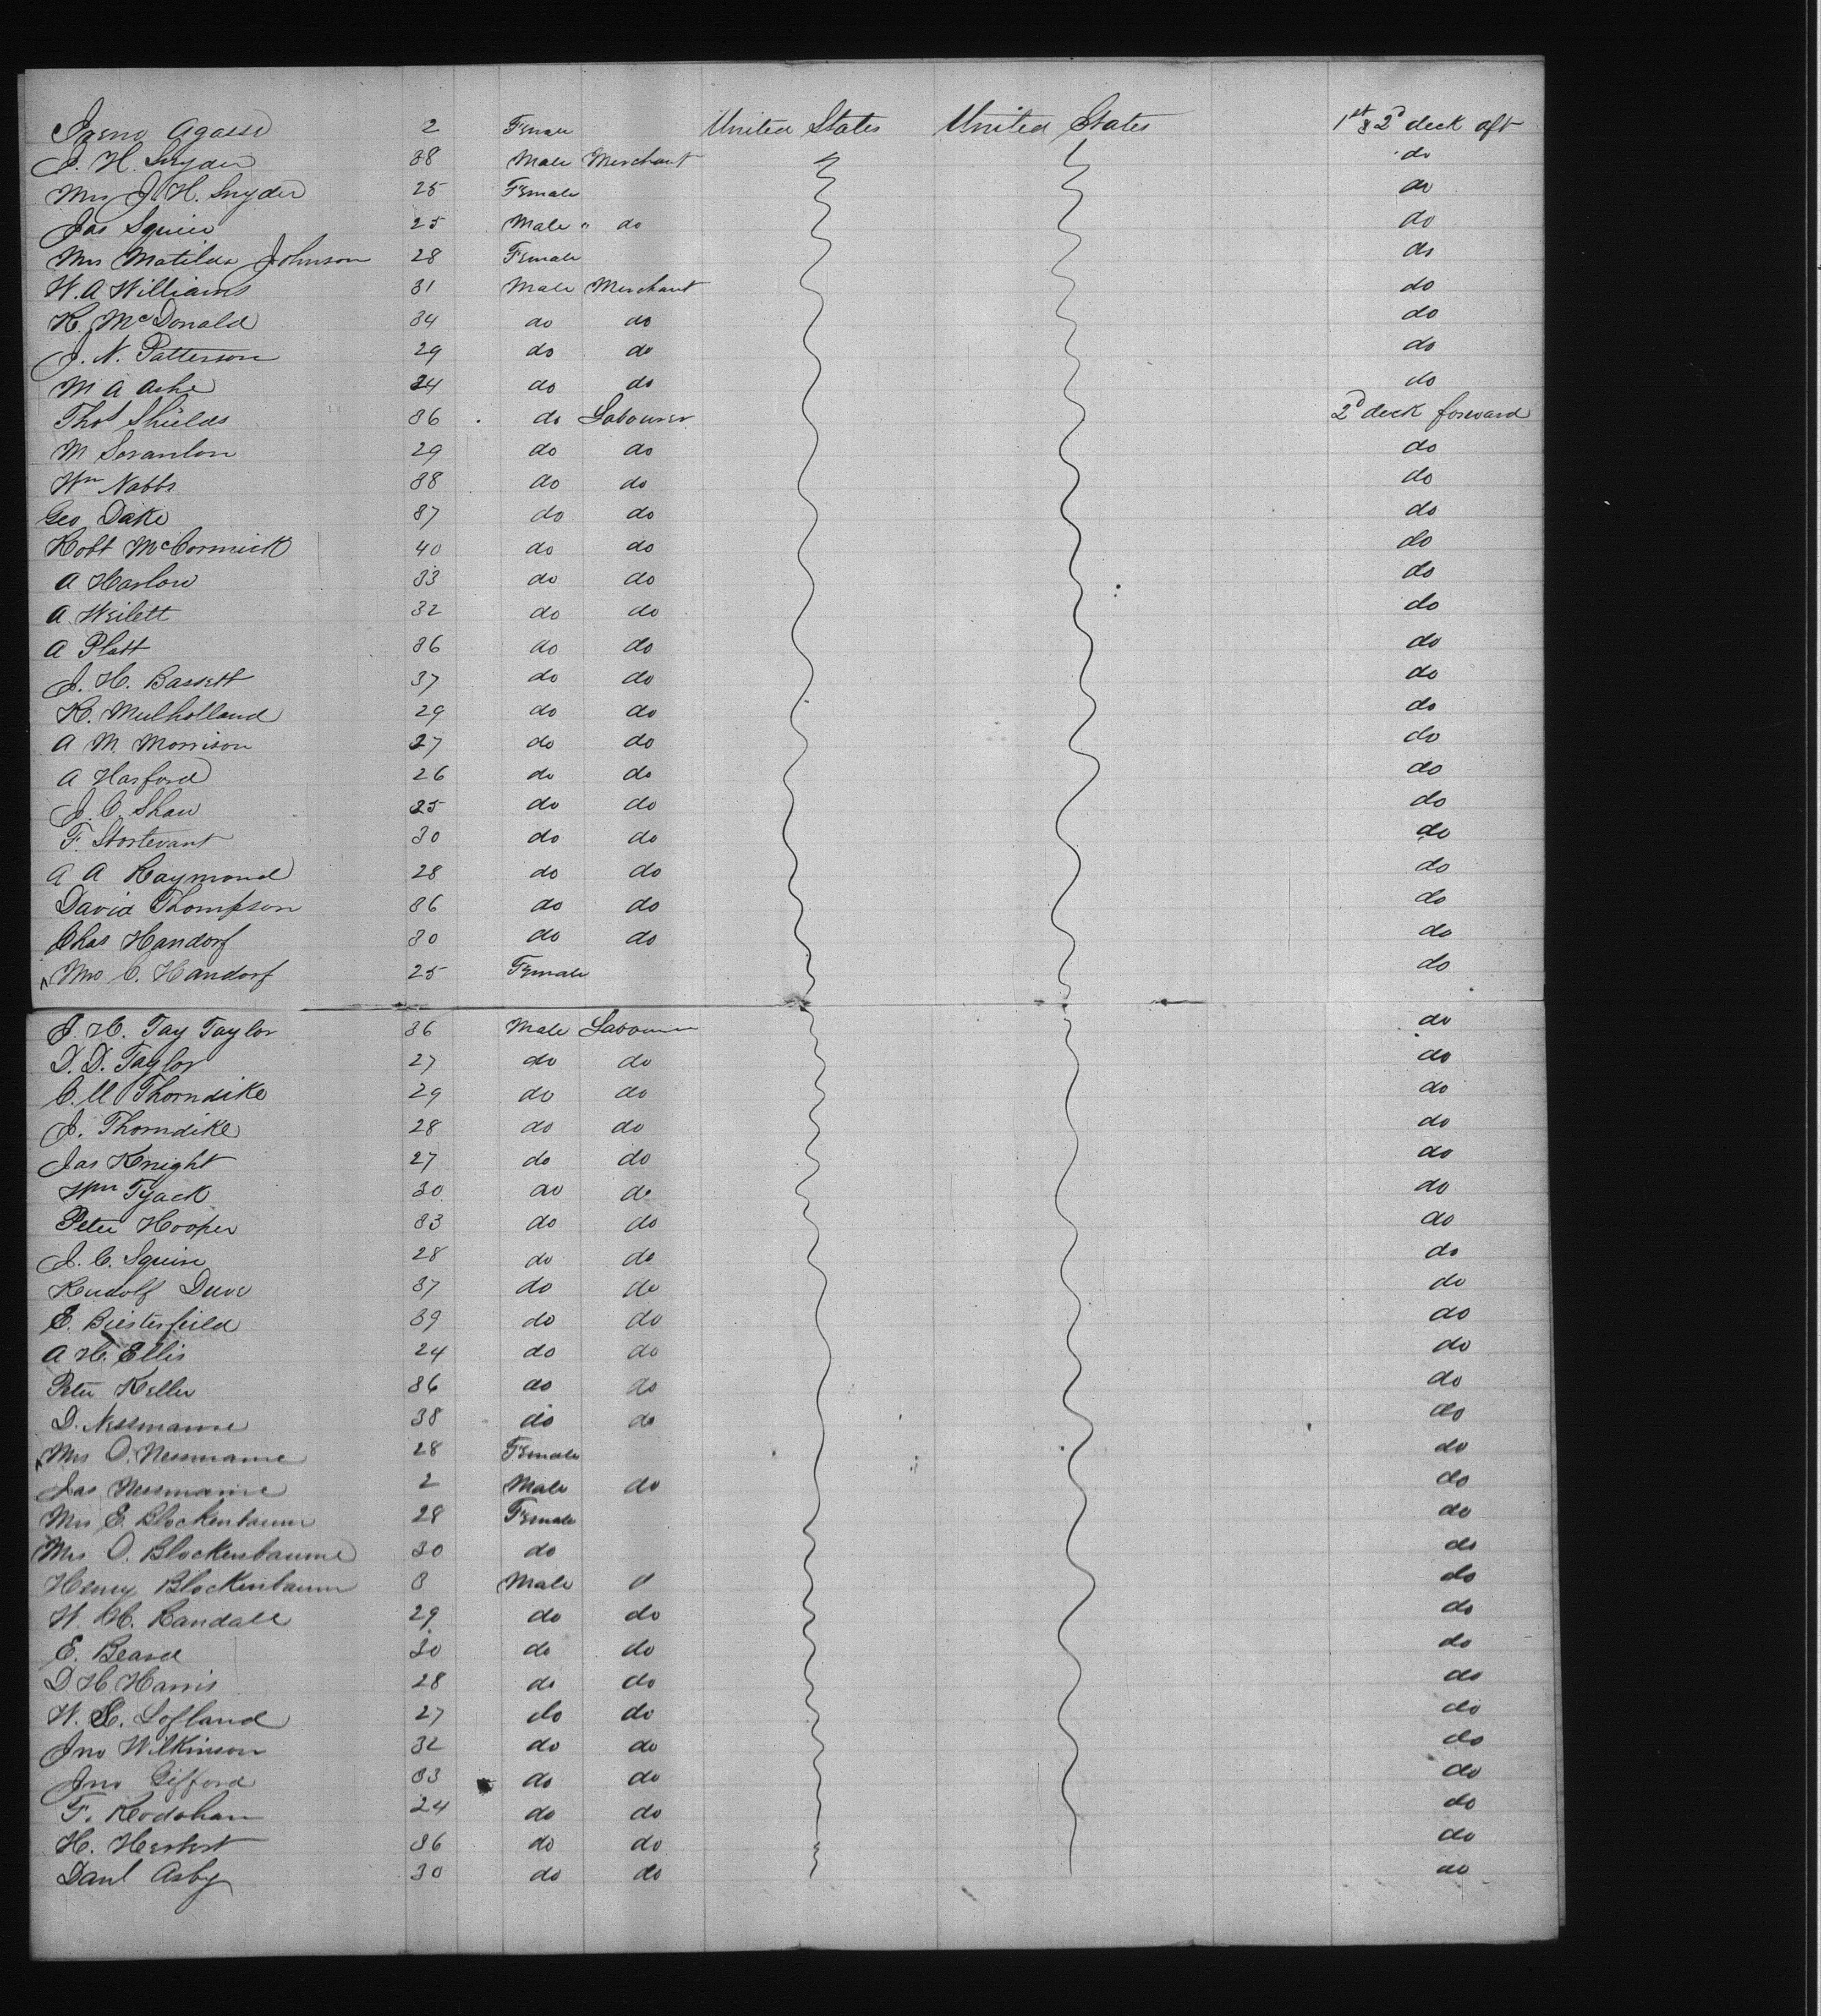 Agassi 2 Female United States United States 1st & 2d deck aft
J. H. Snyder 38 Male Merchant do
Mrs J. H. Snyder 25 Female do
Jas Squier 25 Male " do do
Mrs Matilda Johnson 28 Female do
W. A Williams 31 Male Merchant do
K. McDonald 34 do do do
J. N. Patterson 29 do do do
M A Ashe 24 do do do
Thos Shields 36 do Labourer 2d deck forward
M Scranlon 29 do do do
Wm Nabbs 38 do do do
Geo Dake 37 do do do
Robt McCormick 40 do do do
A Harlow 33 do do do
A Weilett 32 do do do
A Platt 36 do do do
J. H. Bassett 37 do do do
K. Mulholland 29 do do do
A M. Morrison 27 do do do
A Harford 26 do do do
J. C. Shaw 25 do do do
F. Stortevant 30 do do do
A A Raymond 28 do do do
David Thompson 36 do do do
Chas Handorf 30 do do do
Mrs C. Handorf 25 Female do
J. H. Tay Taylor 36 Male Labourer do
D. D. Taylor 27 do do do
C. M Thorndike 29 do do do
J. Thorndike 28 do do do
Jas Knight 27 do do do
Wm Tyack 30 do do do
Peter Hooper 33 do do do
J. C. Squire 28 do do do
Rudolf Duve 37 do do do
E. Biesterfeild 39 do do do
A H. Ellis 24 do do do
Peter Keller 36 do do do
D. Nessmanne 38 do do do
Mrs O. Nessmanne 28 Female do
Jas Nessmanne 2 Male do do
Mrs E. Blockenbaum 28 Female do
Mrs O. Blockenbaume 30 do do
Henry Blockenbaum 8 Male do
W. H. Randall 29 do do do
E. Beard 30 do do do
D H. Harris 28 do do do
W. E. Lofland 27 do do do
Jno Wilkinson 32 do do do
Jno Gifford 33 do do do
F. 24 do do do
H. Herbert 36 do do do
Danl Asby 30 do do do